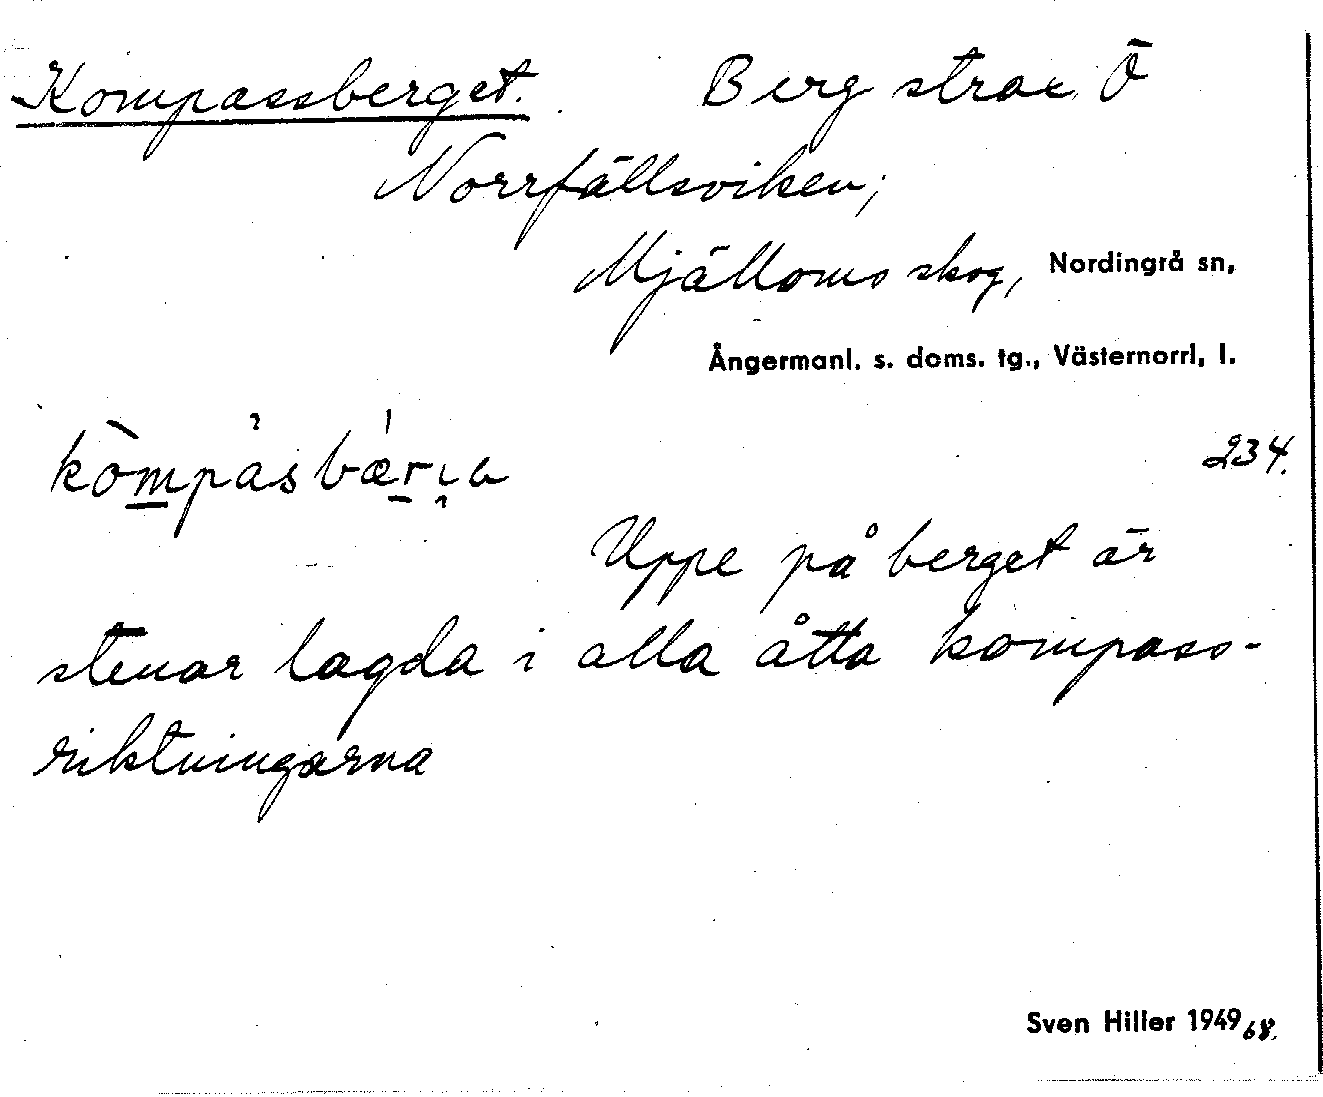 Kompassberget. Berg strax Ö
Norrfällsviken;
Mjälloms skog, Nordingrå sn,
Ångermanl. s. doms. tg., Västernorrl, l.
234.
Uppe på berget är
stenar lagda i alla åtta kompass-
riktningarna
Sven Hiller 1949 68.